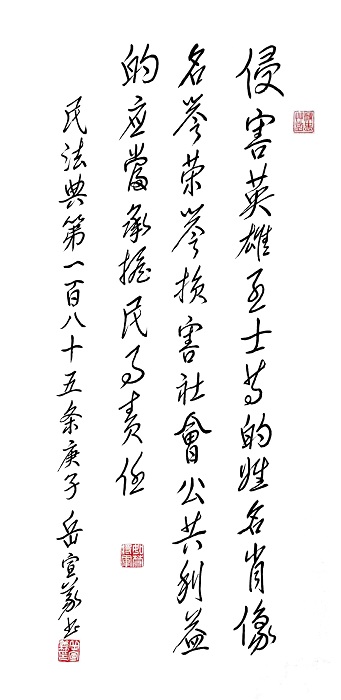 侵害英雄烈士等的姓名肖像
名誉荣誉损害社會公共利益
的应當承担民事责任
民法典第一百八十五条庚子岳宣义书